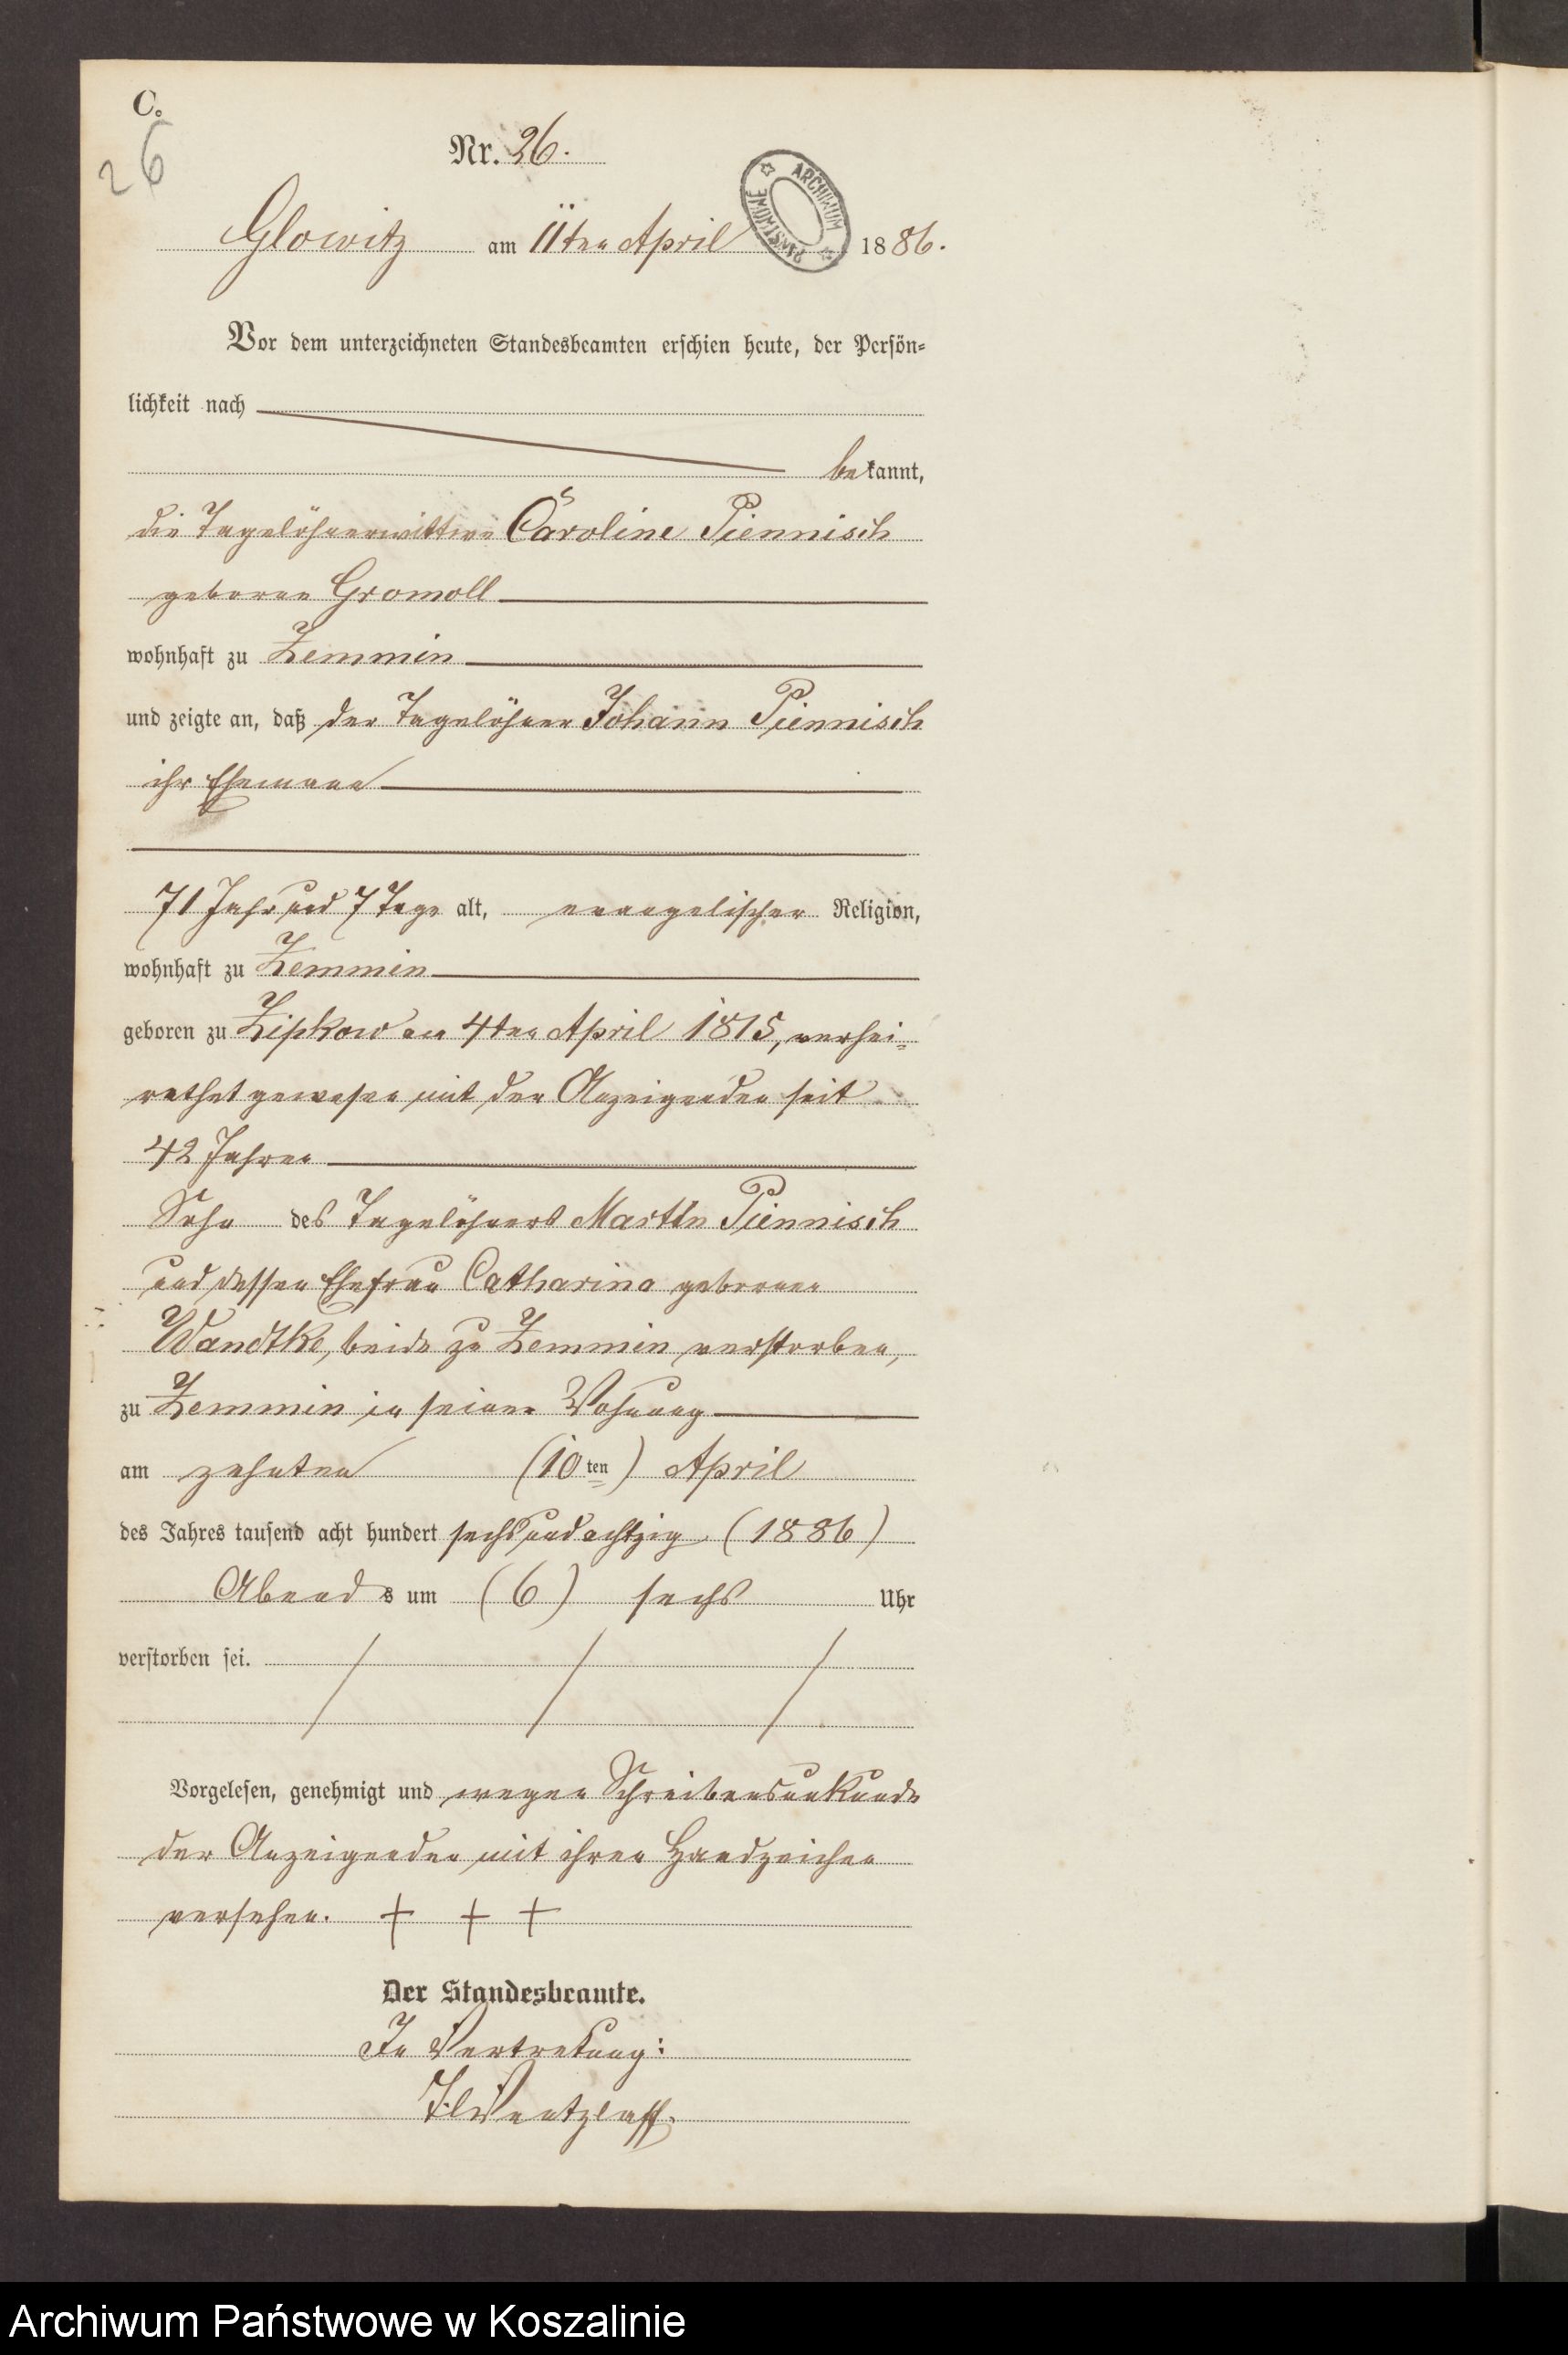 C.
26
Nr. 26.
ARCHIWUM PAŃSTWOWE
Glowitz am 11ten April 1886.
Vor dem unterzeichneten Standesbeamten erschien heute, der Persön-
lichkeit nach
bekannt,
die Tagelöhnerwittwe Caroline Piennisch
geborne Gromoll
wohnhaft zu Zemmin
und zeigte an, daß der Tagelöhner Johann Piennisch
ihr Ehemann
71 Jahr und 7 Tage alt, evangelischer Religion,
wohnhaft zu Zemmin
geboren zu Zipkow am 4ten April 1815, verhei-
rathet gewesen mit der Anzeigenden seit
42 Jahren
Sohn des Tagelöhners Martin Piennisch
und dessen Ehefrau Catharina geborenen
Wandtke, beide zu Zemmin verstorben,
zu Zemmin in seiner Wohnung
am zehnten (10ten) April
des Jahres tausend acht hundert sechsundachtzig (1886)
Abends um (6) sechs Uhr
verstorben sei.
Vorgelesen, genehmigt und wegen Schreibensunkunde
der Anzeigenden mit ihren Handzeichen
versehen. + + +
Der Standesbeamte.
In Vertretung:
Wentzlaff.
Archiwum Państwowe w Koszalinie